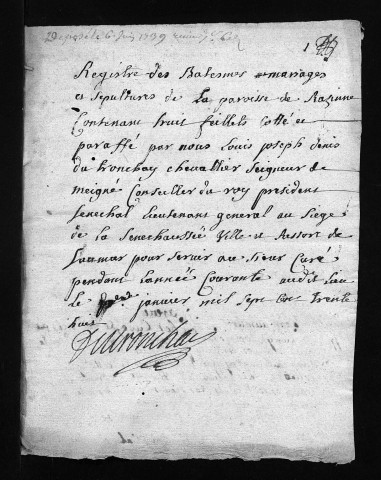 Deposé le 6 Juin 1739
1
Registre des Batesmes mariages
et sepultures de La paroisse de Raziune
Contenant huit feillets Cotté et
paraffé par nous Louis joseph denis
du tronchay chevallier Seigneur de
meigné Conseiller du roy president
senechal lieutenant general au siege
de la senechaussée ville et Ressort de
Saumur pour servir au sieur Curé
pendant lanneé Courante audit lieu
le janvier mil sept cent trente
huit
Dutronchay